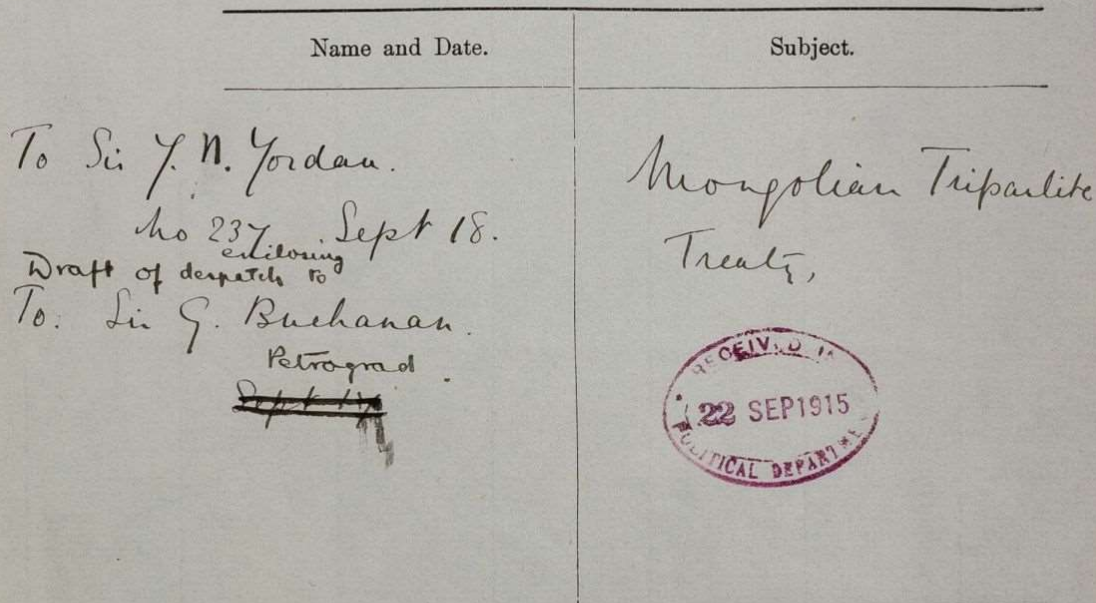 Name and Date.
Subject.
To Sir J. N. Jordan.
No 237 Sept 18.
enclosing
Draft of despatch to
To: Sir G. Buchanan.
Petrograd.
Sept 17
Mongolian Tripartite
Treaty,
RECEIVED IN
22 SEP 1915
POLITICAL DEPARTME